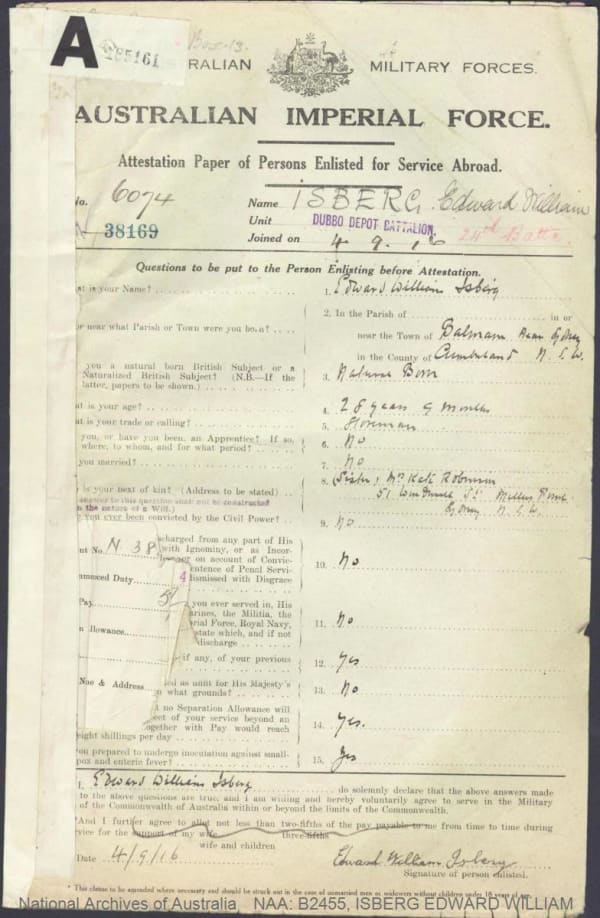 A
Box 13
185161
RALIAN MILITARY FORCES.
AUSTRALIAN IMPERIAL FORCE.
Attestation Paper of Persons Enlisted for Service Abroad.
No. 6074 Name ISBERG Edward William
38169 Unit DUBBO DEPOT BATTALION. 24th Battn.
Joined on 4 9 16
Questions to be put to the Person Enlisting before Attestation.
at is your Name? 1. Edward William Isberg
or near what Parish or Town were you born? 2. In the Parish of in or
near the Town of Balmain Near Sydney
in the County of Cumberland N.S.W.
you a natural born British Subject or a
Naturalized British Subject? (N.B.—If the
latter, papers to be shown.) 3. Natural Born
at is your age? 4. 28 years 9 months
at is your trade or calling? 5. Storeman
you, or have you been, an Apprentice? If so,
where, to whom, and for what period? 6. No
you married? 7. No
is your next of kin? (Address to be stated) 8. (Sister) Mrs Kate Robinson
51 Windmill St. Millers Point
Sydney N.S.W.
answer to this question shall not be construed
n the nature of a Will.)
you ever been convicted by the Civil Power? 9. No
scharged from any part of His
with Ignominy, or as Incor-
on account of Convic-
entence of Penal Servi-
dismissed with Disgrace 10. No
nt No. N 38
menced Duty 4
Pay 5/-
n allowance
Nae & Address
you ever served in, His
arines, the Militia, the
rial Force, Royal Navy,
state which, and if not
discharge 11. No
if any, of your previous 12. Yes
ed as unfit for His Majesty's
n what grounds? 13. No
t no Separation Allowance will
ect of your service beyond an
ogether with Pay would reach
eight shillings per day 14. Yes.
ou prepared to undergo inoculation against small-
pox and enteric fever? 15. Yes
I, Edward William Isberg do solemnly declare that the above answers made
to the above questions are true, and I am willing and hereby voluntarily agree to serve in the Military
of the Commonwealth of Australia within or beyond the limits of the Commonwealth.
*And I further agree to allot not less than two-fifths of the pay payable to me from time to time during
vice for the support of my wife three-fifths
wife and children
Date 4/9/16 Edward William Isberg
Signature of person enlisted.
* This clause to be amended where necessary and should be struck out in the case of unmarried men or widowers without children under 18 years of age.
National Archives of Australia NAA: B2455, ISBERG EDWARD WILLIAM